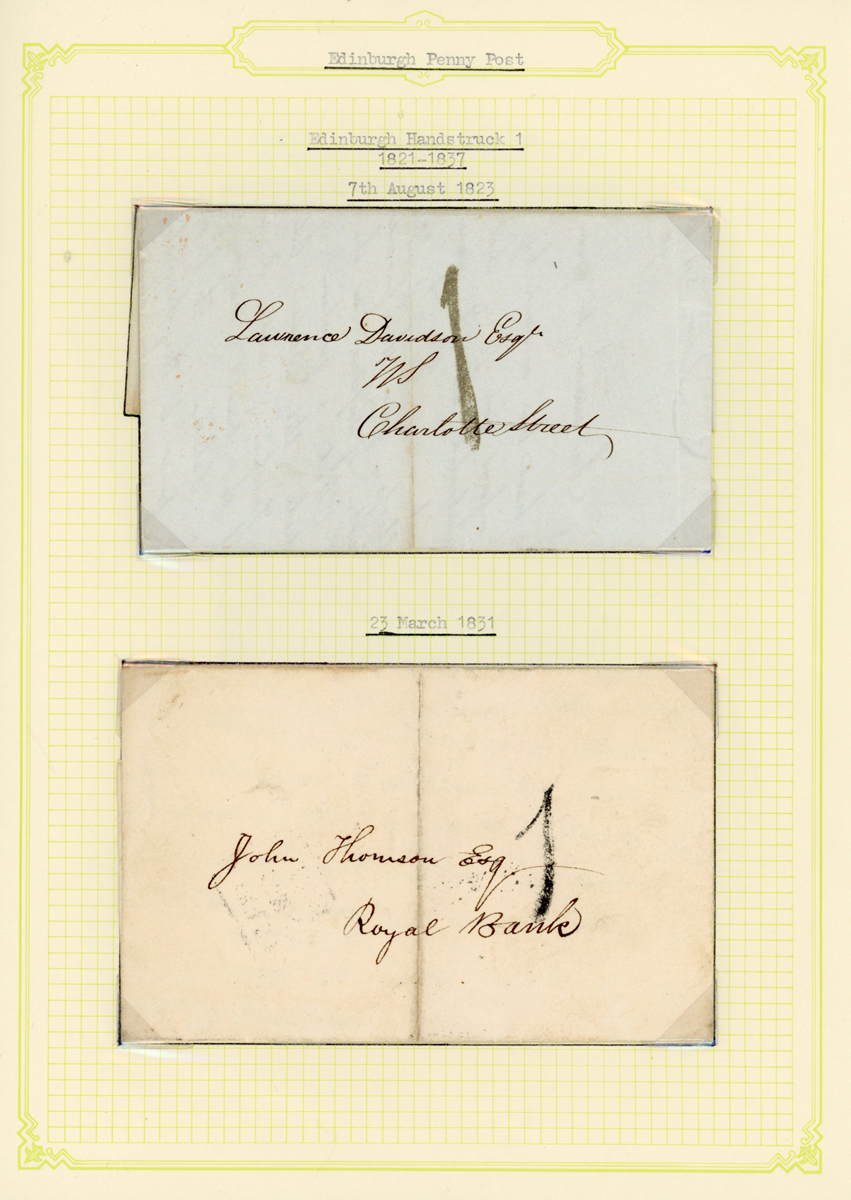 Edinburgh Penny Post
Edinburgh Handstruck 1
1821-1837
7th August 1823
1
Lawrence Davidson Esqr
WS
Charlotte Street
23 March 1831
1
John Thomson Esq
Royal Bank